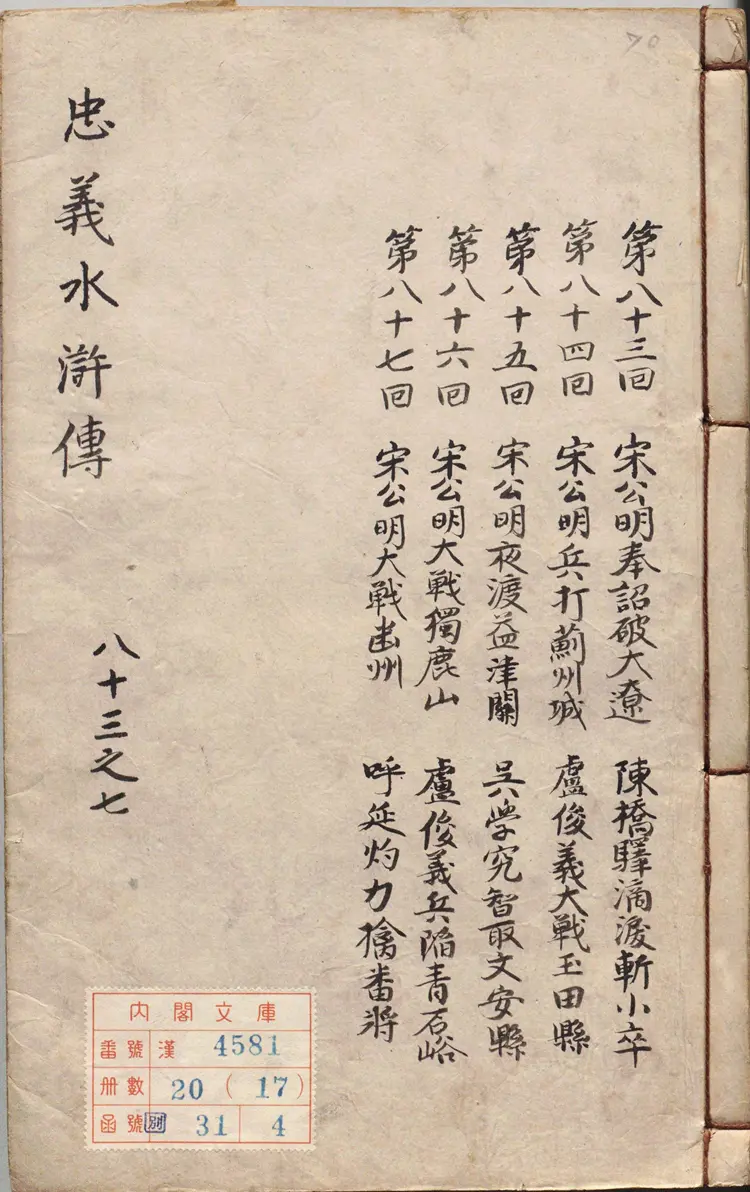 70
第八十三回 宋公明奉詔破大遼 陳橋驛滴淚斬小卒
第八十四回 宋公明兵打薊州城 盧俊義大戰玉田縣
第八十五回 宋公明夜渡益津關 吳學究智取文安縣
第八十六回 宋公明大戰獨鹿山 盧俊義兵陷青石峪
第八十七回 宋公明大戰幽州 呼延灼力擒番將
忠義水滸傳 八十三之七
內閣文庫
番號 漢 4581
册數 20(17)
函號 別 31 4